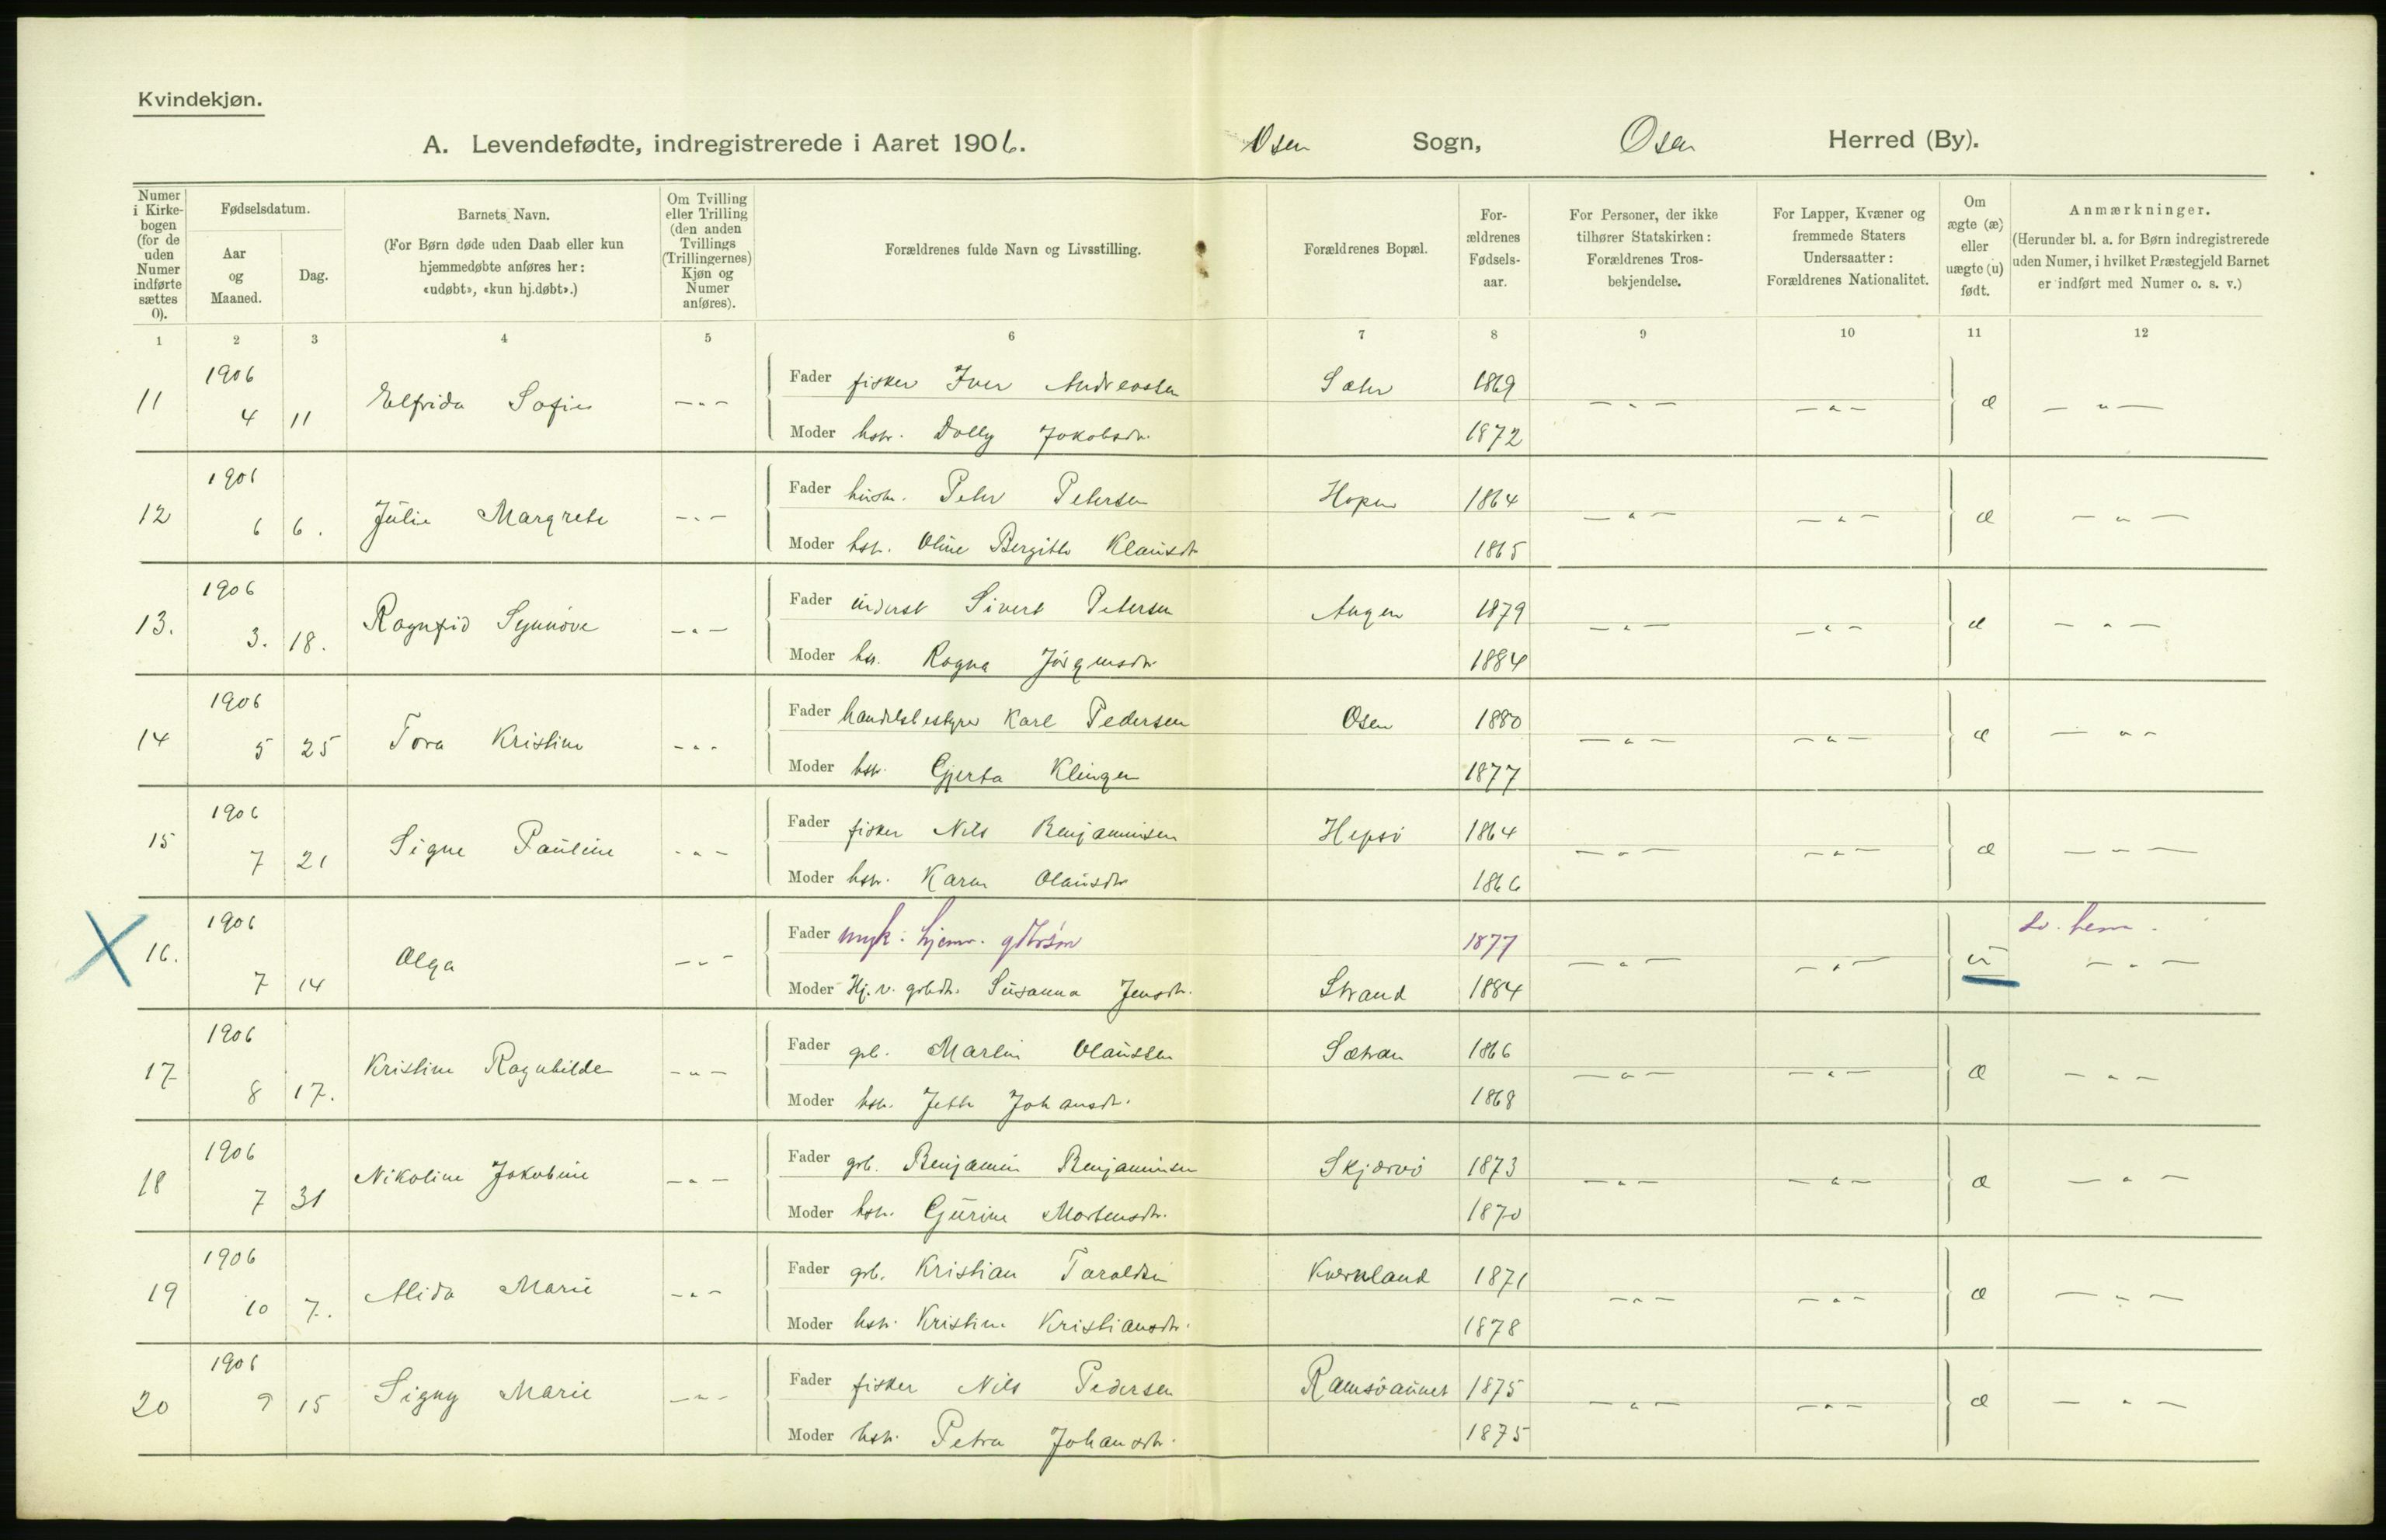 Kvindekjøn.
A. Levendefødte, indregistrerede i Aaret 1906. Osen Sogn, Osen Herred (By).
Numer i Kirkebogen (for de uden Numer indførte sættes 0).
Fødselsdatum.
Aar og Maaned.
Dag.
Barnets Navn.
(For Børn døde uden Daab eller kun hjemmedøbte anføres her: «udøbt», «kun hj.døbt».)
Om Tvilling eller Trilling (den anden Tvillings (Trillingernes) Kjøn og Numer anføres).
Forældrenes fulde Navn og Livsstilling.
Forældrenes Bopæl.
Forældrenes Fødselsaar.
For Personer, der ikke tilhører Statskirken: Forældrenes Trosbekjendelse.
For Lapper, Kvæner og fremmede Staters Undersaatter: Forældrenes Nationalitet.
Om ægte (æ) eller uægte (u) født.
Anmærkninger.
(Herunder bl. a. for Børn indregistrerede uden Numer, i hvilket Præstegjeld Barnet er indført med Numer o. s. v.)
1 2 3 4 5 6 7 8 9 10 11 12
11 1906 4 11 Elfrida Sofie —"— Fader fisker Iver Andreassen Sæter 1869 —"— —"— æ —"—
Moder hstr. Dolly Jakobsdr. 1872
12 1906 6 6. Julie Margrete —"— Fader husm. Peter Petersen Hopen 1864 —"— —"— æ —"—
Moder hstr. Oline Bergitte Klausdr 1865
13. 1906 3. 18. Ragnfid Synnöve —"— Fader inderst Sivert Petersen Angen 1879 —"— —"— æ —"—
Moder hstr. Ragna Jörgensdr 1884
14 1906 5 25 Tora Kristine —"— Fader handelsbestyrer Karl Pedersen Osen 1880 —"— —"— æ —"—
Moder hstr. Gjerta Klingen 1877
15 1906 7 21 Signe Pauline —"— Fader fisker Nils Benjaminsen Hepsö 1864 —"— —"— æ —"—
Moder hstr. Karen Olausdr 1866
16. 1906 7 14 Olga —"— Fader ungk. hjemv. 1877 —"— —"— u —"—
Moder Hj. v. grbdtr. Susanna Jensdr. Strand 1884
17 1906 8 17. Kristine Ragnhilde —"— Fader gb. Martin Olaussen Sætran 1866 —"— —"— æ —"—
Moder hstr. Jette Johansdr. 1868
18 1906 7 31 Nikoline Jakobine —"— Fader grb. Benjamin Benjaminsen Skjærvö 1873 —"— —"— æ —"—
Moder hstr. Gjurine Mortensdr. 1870
19 1906 10 7. Alida Marie —"— Fader grb. Kristian Taraldsen Kvernland 1871 —"— —"— æ —"—
Moder hstr. Kristine Kristiansdr. 1878
20 1906 9 15 Signy Marie —"— Fader fisker Nils Pedersen Ramsöaunet 1875 —"— —"— æ —"—
Moder hstr. Petra Johansdr. 1875